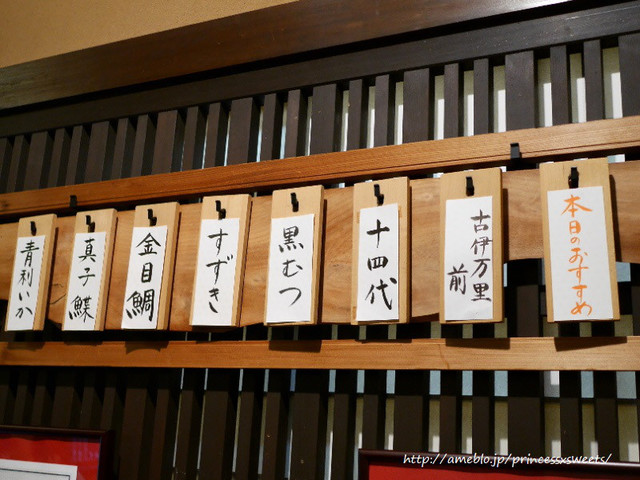 本日のおすすめ
古伊万里
前
十四代
黒むつ
すずき
金目鯛
真子鰈
青利いか
http://ameblo.jp/princessxsweets/